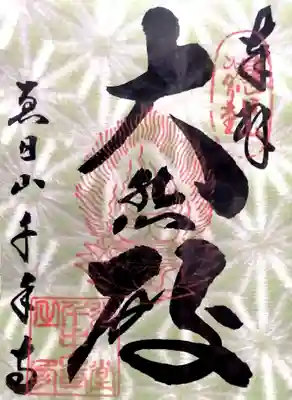 奉拝
大悲殿
恵日山千手寺